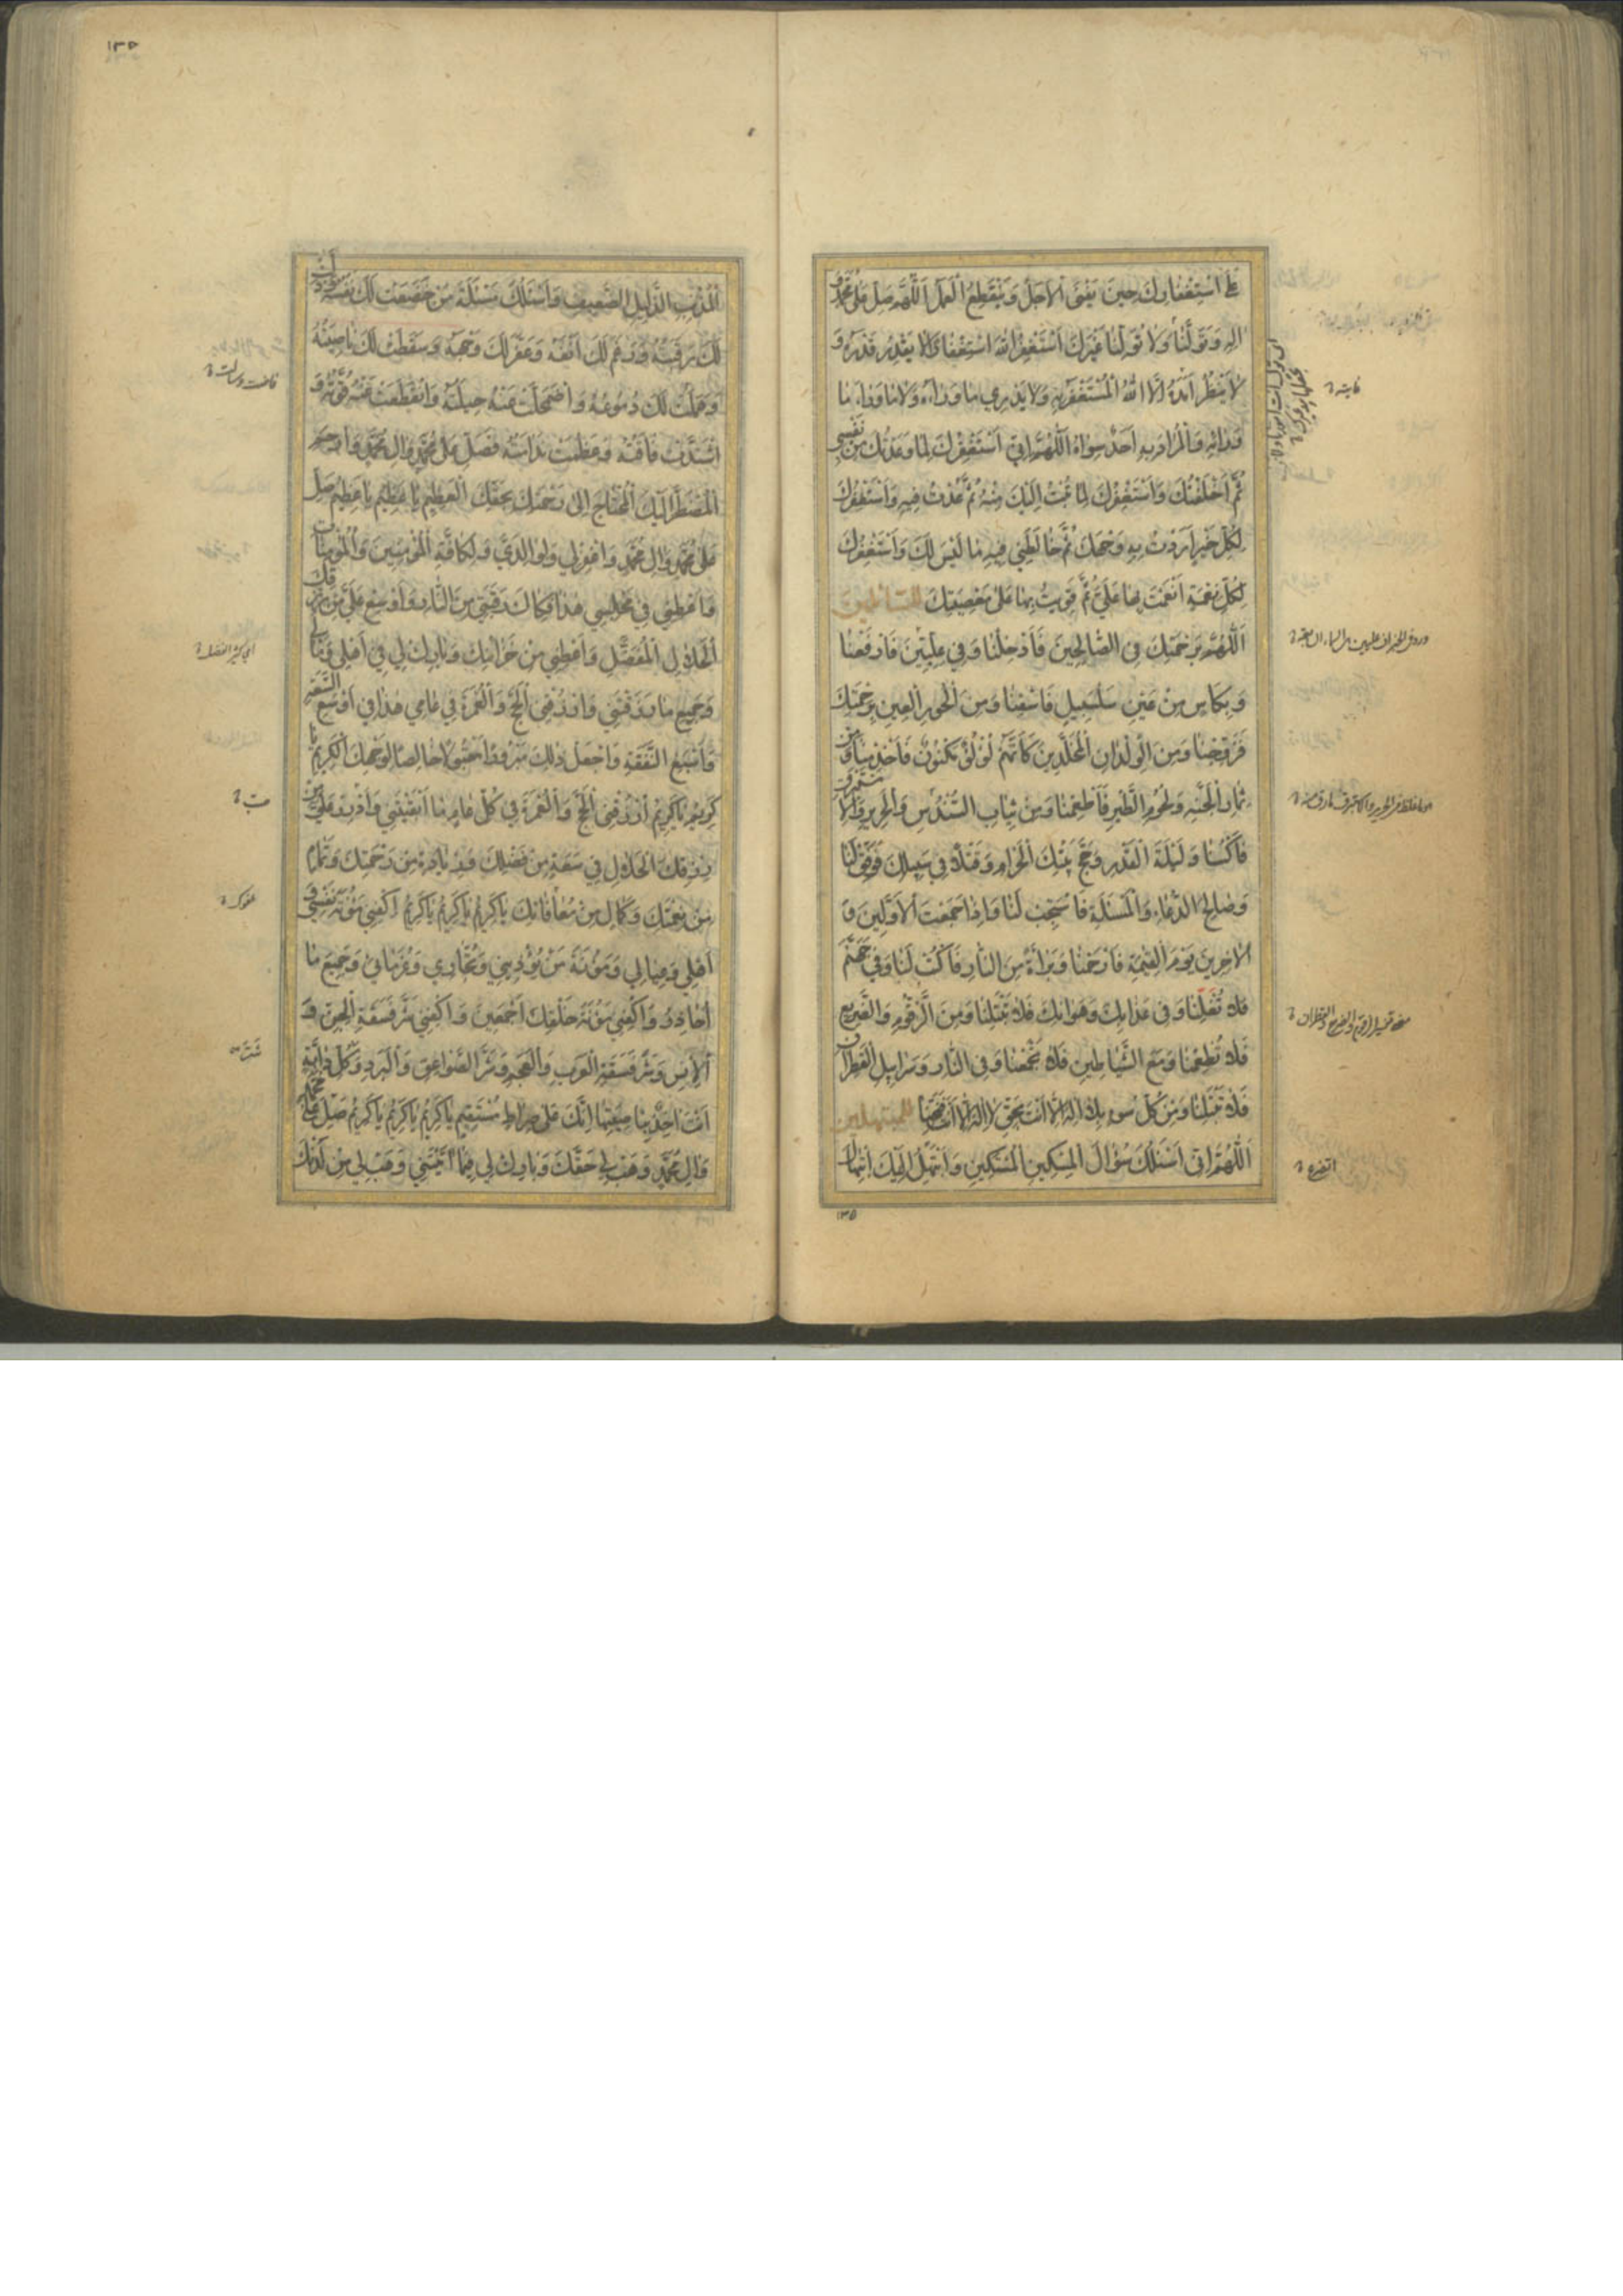 عَلَى اسْتِغْفَارِكَ حِينَ يَفْنَى الْأَجَلُ وَيَنْقَطِعُ الْعَمَلُ اَللّٰهُمَّ صَلِّ عَلَى مُحَمَّدٍ وَ
اٰلِهِ وَتَوَلَّنَا وَلَا تُوَلِّنَا غَيْرَكَ اَسْتَغْفِرُ اللّٰهَ اسْتِغْفَارًا لَا يَقْدِرُ قَدْرَهُ وَ
لَا يَنْظُرُ اَمَدَهُ اِلَّا اللّٰهُ الْمُسْتَغْفَرُ بِهِ وَلَا يَدْرِي مَا وَرَاءَهُ وَلَا مَا وَرَاءَ مَا
وَرَائِهِ وَالْمُرَادَ بِهِ اَحَدٌ سِوَاهُ اَللّٰهُمَّ اِنِّي اَسْتَغْفِرُكَ لِمَا وَعَدْتُكَ مِنْ نَفْسِي
ثُمَّ اَخْلَفْتُكَ وَاَسْتَغْفِرُكَ لِمَا تُبْتُ اِلَيْكَ مِنْهُ ثُمَّ عُدْتُ فِيهِ وَاَسْتَغْفِرُكَ
لِكُلِّ خَيْرٍ اَرَدْتُ بِهِ وَجْهَكَ ثُمَّ خَالَطَنِي فِيهِ مَا لَيْسَ لَكَ وَاَسْتَغْفِرُكَ
لِكُلِّ نِعْمَةٍ اَنْعَمْتَ بِهَا عَلَيَّ ثُمَّ قَوِيتُ بِهَا عَلَى مَعْصِيَتِكَ
اَللّٰهُمَّ بِرَحْمَتِكَ فِي الصَّالِحِينَ فَاَدْخِلْنَا وَفِي عِلِّيِّينَ فَارْفَعْنَا
وَبِكَأْسٍ مِنْ عَيْنِ سَلْسَبِيلٍ فَاسْقِنَا وَمِنَ الْحُورِ الْعِينِ بِرَحْمَتِكَ
فَزَوِّجْنَا وَمِنَ الْوِلْدَانِ الْمُخَلَّدِينَ كَاَنَّهُمْ لُؤْلُؤٌ مَكْنُونٌ فَاَخْدِمْنَا وَمِنْ
ثِمَارِ الْجَنَّةِ وَلُحُومِ الطَّيْرِ فَاَطْعِمْنَا وَمِنْ ثِيَابِ السُّنْدُسِ وَالْحَرِيرِ وَالْاِسْتَبْرَقِ
فَاكْسُنَا وَلَيْلَةَ الْقَدْرِ وَحَجَّ بَيْتِكَ الْحَرَامِ وَقَتْلًا فِي سَبِيلِكَ فَوَفِّقْ لَنَا
وَصَالِحَ الدُّعَاءِ وَالْمَسْئَلَةِ فَاسْتَجِبْ لَنَا وَاِذَا جَمَعْتَ الْاَوَّلِينَ وَ
الْاٰخِرِينَ يَوْمَ الْقِيٰمَةِ فَارْحَمْنَا وَبَرَاءَةً مِنَ النَّارِ فَاكْتُبْ لَنَا وَفِي جَهَنَّمَ
فَلَا تَغُلَّنَا وَفِي عَذَابِكَ وَهَوَانِكَ فَلَا تَبْتَلِنَا وَمِنَ الزَّقُّومِ وَالضَّرِيعِ
فَلَا تُطْعِمْنَا وَمَعَ الشَّيَاطِينِ فَلَا تَجْمَعْنَا وَفِي النَّارِ وَسَرَابِيلِ الْقَطِرَانِ
اَللّٰهُمَّ اِنِّي اَسْئَلُكَ سُؤَالَ الْمِسْكِينِ الْمُسْتَكِينِ وَاَبْتَهِلُ اِلَيْكَ ابْتِهَالَ
١٣٥
١٣٥
الْمُذْنِبِ الذَّلِيلِ الضَّعِيفِ وَاَسْئَلُكَ مَسْئَلَةَ مَنْ خَضَعَتْ لَكَ نَفْسُهُ
لَكَ رَقَبَتُهُ وَرَغِمَ لَكَ اَنْفُهُ وَعَفَّرَ لَكَ وَجْهَهُ وَسَقَطَتْ لَكَ نَاصِيَتُهُ
وَهَمَلَتْ لَكَ دُمُوعُهُ وَاضْمَحَلَّتْ عَنْهُ حِيلَتُهُ وَانْقَطَعَتْ عَنْهُ قُوَّتُهُ وَ
اشْتَدَّتْ فَاقَتُهُ وَعَظُمَتْ نَدَامَتُهُ فَصَلِّ عَلَى مُحَمَّدٍ وَاٰلِ مُحَمَّدٍ وَارْحَمِ
الْمُضْطَرَّ اِلَيْكَ الْمُحْتَاجَ اِلَى رَحْمَتِكَ بِحَقِّكَ الْعَظِيمِ يَا عَظِيمُ يَا عَظِيمُ صَلِّ
عَلَى مُحَمَّدٍ وَاٰلِ مُحَمَّدٍ وَاغْفِرْ لِي وَلِوَالِدَيَّ وَلِكَافَّةِ الْمُؤْمِنِينَ وَالْمُؤْمِنَاتِ
وَاَعْطِنِي فِي مَجْلِسِي هٰذَا فَكَاكَ رَقَبَتِي مِنَ النَّارِ وَاَوْسِعْ عَلَيَّ مِنْ رِزْقِكَ
الْحَلَالِ الْمُفْضَلِ وَاَعْطِنِي مِنْ خَزَائِنِكَ وَبَارِكْ لِي فِي اَهْلِي وَمَالِي
وَجَمِيعِ مَا رَزَقْتَنِي وَارْزُقْنِي الْحَجَّ وَالْعُمْرَةَ فِي عَامِي هٰذَا فِي اَوْسَعِ السَّعَةِ
وَاَسْبَغِ النَّفَقَةِ وَاجْعَلْ ذٰلِكَ مَبْرُورًا مُتَقَبَّلًا خَالِصًا لِوَجْهِكَ الْكَرِيمِ يَا
كَرِيمُ يَا كَرِيمُ ارْزُقْنِي الْحَجَّ وَالْعُمْرَةَ فِي كُلِّ عَامٍ مَا اَبْقَيْتَنِي وَادْرُرْ عَلَيَّ مِنْ
رِزْقِكَ الْحَلَالِ فِي سَعَةٍ مِنْ فَضْلِكَ وَزِيَادَةٍ مِنْ رَحْمَتِكَ وَتَمَامٍ
مِنْ نِعْمَتِكَ وَكَمَالٍ مِنْ مُعَافَاتِكَ يَا كَرِيمُ يَا كَرِيمُ يَا كَرِيمُ اكْفِنِي مَؤُنَةَ نَفْسِي وَ
اَهْلِي وَعِيَالِي وَمَؤُنَةَ مَنْ يُؤْذِينِي وَتِجَارَتِي وَغُرَمَائِي وَجَمِيعِ مَا
اُحَاذِرُ وَاكْفِنِي مَؤُنَةَ خَلْقِكَ اَجْمَعِينَ وَاكْفِنِي شَرَّ فَسَقَةِ الْجِنِّ وَ
الْاِنْسِ وَشَرَّ فَسَقَةِ الْعَرَبِ وَالْعَجَمِ وَشَرَّ الصَّوَاعِقِ وَالْبَرَدِ وَكُلِّ دَابَّةٍ
اَنْتَ اٰخِذٌ بِنَاصِيَتِهَا اِنَّكَ عَلَى صِرَاطٍ مُسْتَقِيمٍ يَا كَرِيمُ يَا كَرِيمُ يَا كَرِيمُ صَلِّ عَلَى مُحَمَّدٍ
وَاٰلِ مُحَمَّدٍ وَهَبْ لِي حَقَّكَ وَبَارِكْ لِي فِيمَا اٰتَيْتَنِي وَهَبْ لِي مِنْ لَدُنْكَ